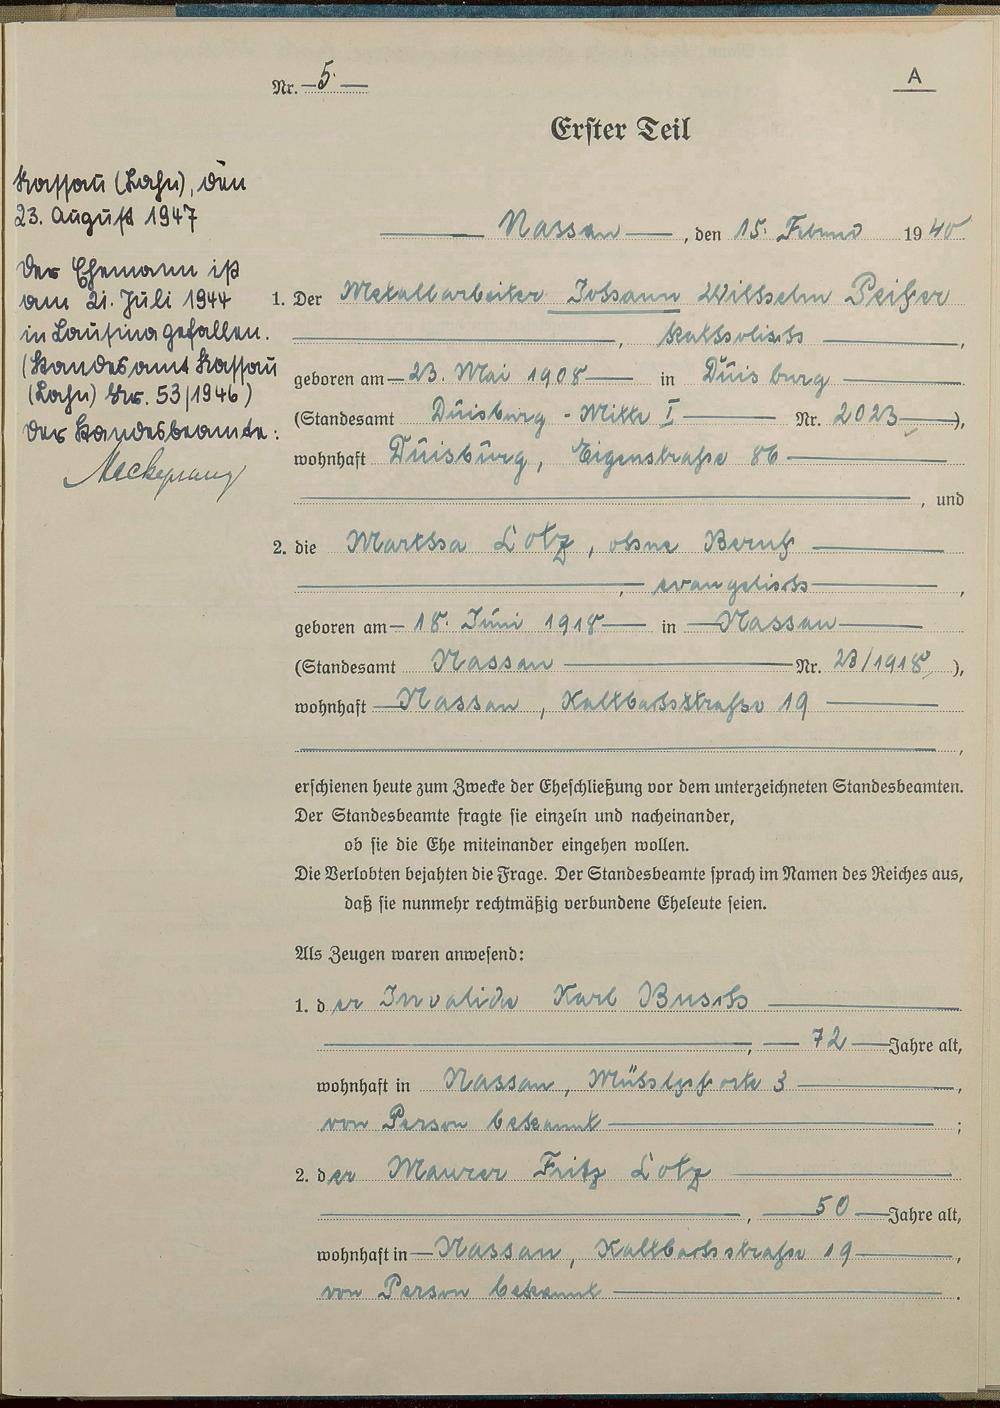 Nr. 5.
A
Erster Teil
Nassau (Lahn), den
23. August 1947
Der Ehemann ist
am 21. Juli 1944
in gefallen.
(Standesamt Nassau
(Lahn) Nr. 53/1946)
Der Standesbeamte:
Nassau, den 15. Februar 1940
1. Der Metallarbeiter Johann Wilhelm Peifer
, katholisch,
geboren am 23. Mai 1908 in Duisburg
(Standesamt Duisburg - Mitte I Nr. 2023),
wohnhaft Duisburg, Eigenstraße 86
, und
2. die Martha Lotz, ohne Beruf
, evangelisch,
geboren am 18. Juni 1918 in Nassau
(Standesamt Nassau Nr. 23/1918),
wohnhaft Nassau, Kaltbachstraße 19
,
erschienen heute zum Zwecke der Eheschließung vor dem unterzeichneten Standesbeamten.
Der Standesbeamte fragte sie einzeln und nacheinander,
ob sie die Ehe miteinander eingehen wollen.
Die Verlobten bejahten die Frage. Der Standesbeamte sprach im Namen des Reiches aus,
daß sie nunmehr rechtmäßig verbundene Eheleute seien.
Als Zeugen waren anwesend:
1. der Invalide Karl Busch
, 72 Jahre alt,
wohnhaft in Nassau, 3,
von Person bekannt;
2. der Maurer Fritz Lotz
, 50 Jahre alt,
wohnhaft in Nassau, Kaltbachstraße 19,
von Person bekannt.